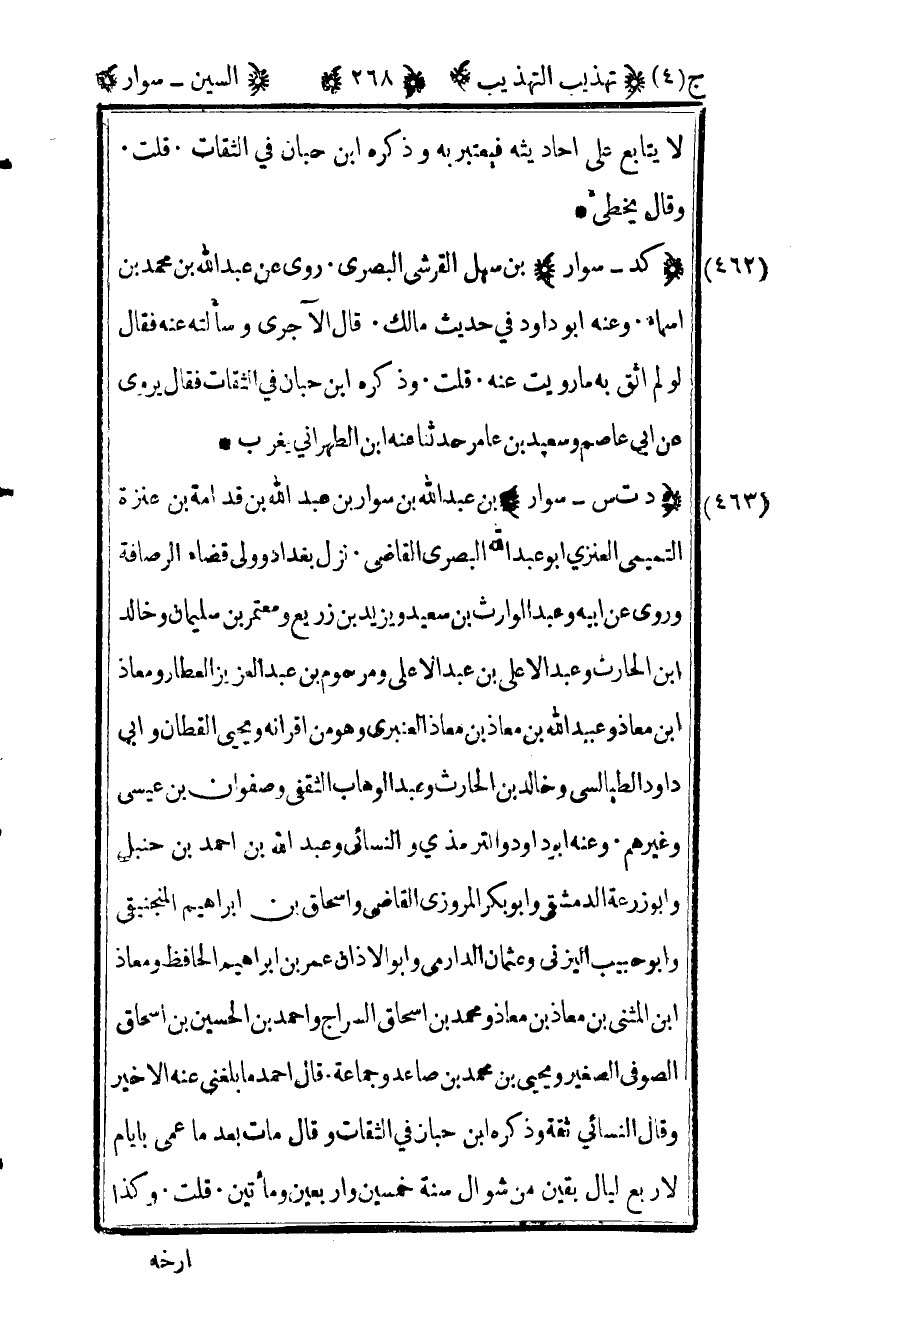 ج(٤) ﴿ تهذيب التهذيب ﴾ ﴿ ٢٦٨ ﴾ ﴿ السين ـ سوار ﴾
لا يتابع على احاديثه فيعتبر به وذكره ابن حبان في الثقات · قلت ·
وقال يخطئ •
(٤٦٢) ﴿ كد ـ سوار ﴾ بن سهل القرشى البصرى · روى عن عبدالله بن محمد بن
اسماء · وعنه ابو داود في حديث مالك · قال الآجرى وسألته عنه فقال
لو لم اثق به مارويت عنه · قلت · وذكره ابن حبان في الثقات فقال يروى
عن ابي عاصم وسعيد بن عامر حدثنا عنه ابن الطهراني يغرب •
(٤٦٣) ﴿ د ت س ـ سوار ﴾ بن عبدالله بن سوار بن عبد الله بن قدامة بن عنزة
التميمى العنزي ابو عبد الله البصرى القاضى · نزل بغداد وولى قضاء الرصافة
وروى عن ابيه وعبد الوارث بن سعيد ويزيد بن زريع ومعتمر بن سليمان وخالد
ابن الحارث وعبد الاعلى بن عبد الاعلى ومرحوم بن عبد العزيز العطار ومعاذ
ابن معاذ وعبيد الله بن معاذ بن معاذ العنبرى وهو من اقرانه ويحيى القطان وابي
داود الطيالسى وخالد بن الحارث وعبد الوهاب الثقفى وصفوان بن عيسى
وغيرهم · وعنه ابو داود والترمذي و النسائى وعبد الله بن احمد بن حنبل
وابو زرعة الدمشقى وابو بكر المروزى القاضى واسحاق بن ابراهيم المنجنيقى
وابو حبيب اليزنى وعثمان الدارمى وابو الاذان عمر بن ابراهيم الحافظ ومعاذ
ابن المثنى بن معاذ بن معاذ ومحمد بن اسحاق السراج واحمد بن الحسين بن اسحاق
الصوفى الصغير ويحيى بن محمد بن صاعد وجماعة · قال احمد ما بلغني عنه الا خير
وقال النسائي ثقة وذكره ابن حبان في الثقات وقال مات بعد ما عمى بايام
لاربع ليال بقين من شوال سنة خمسين واربعين ومأتين · قلت · وكذا
ارخه